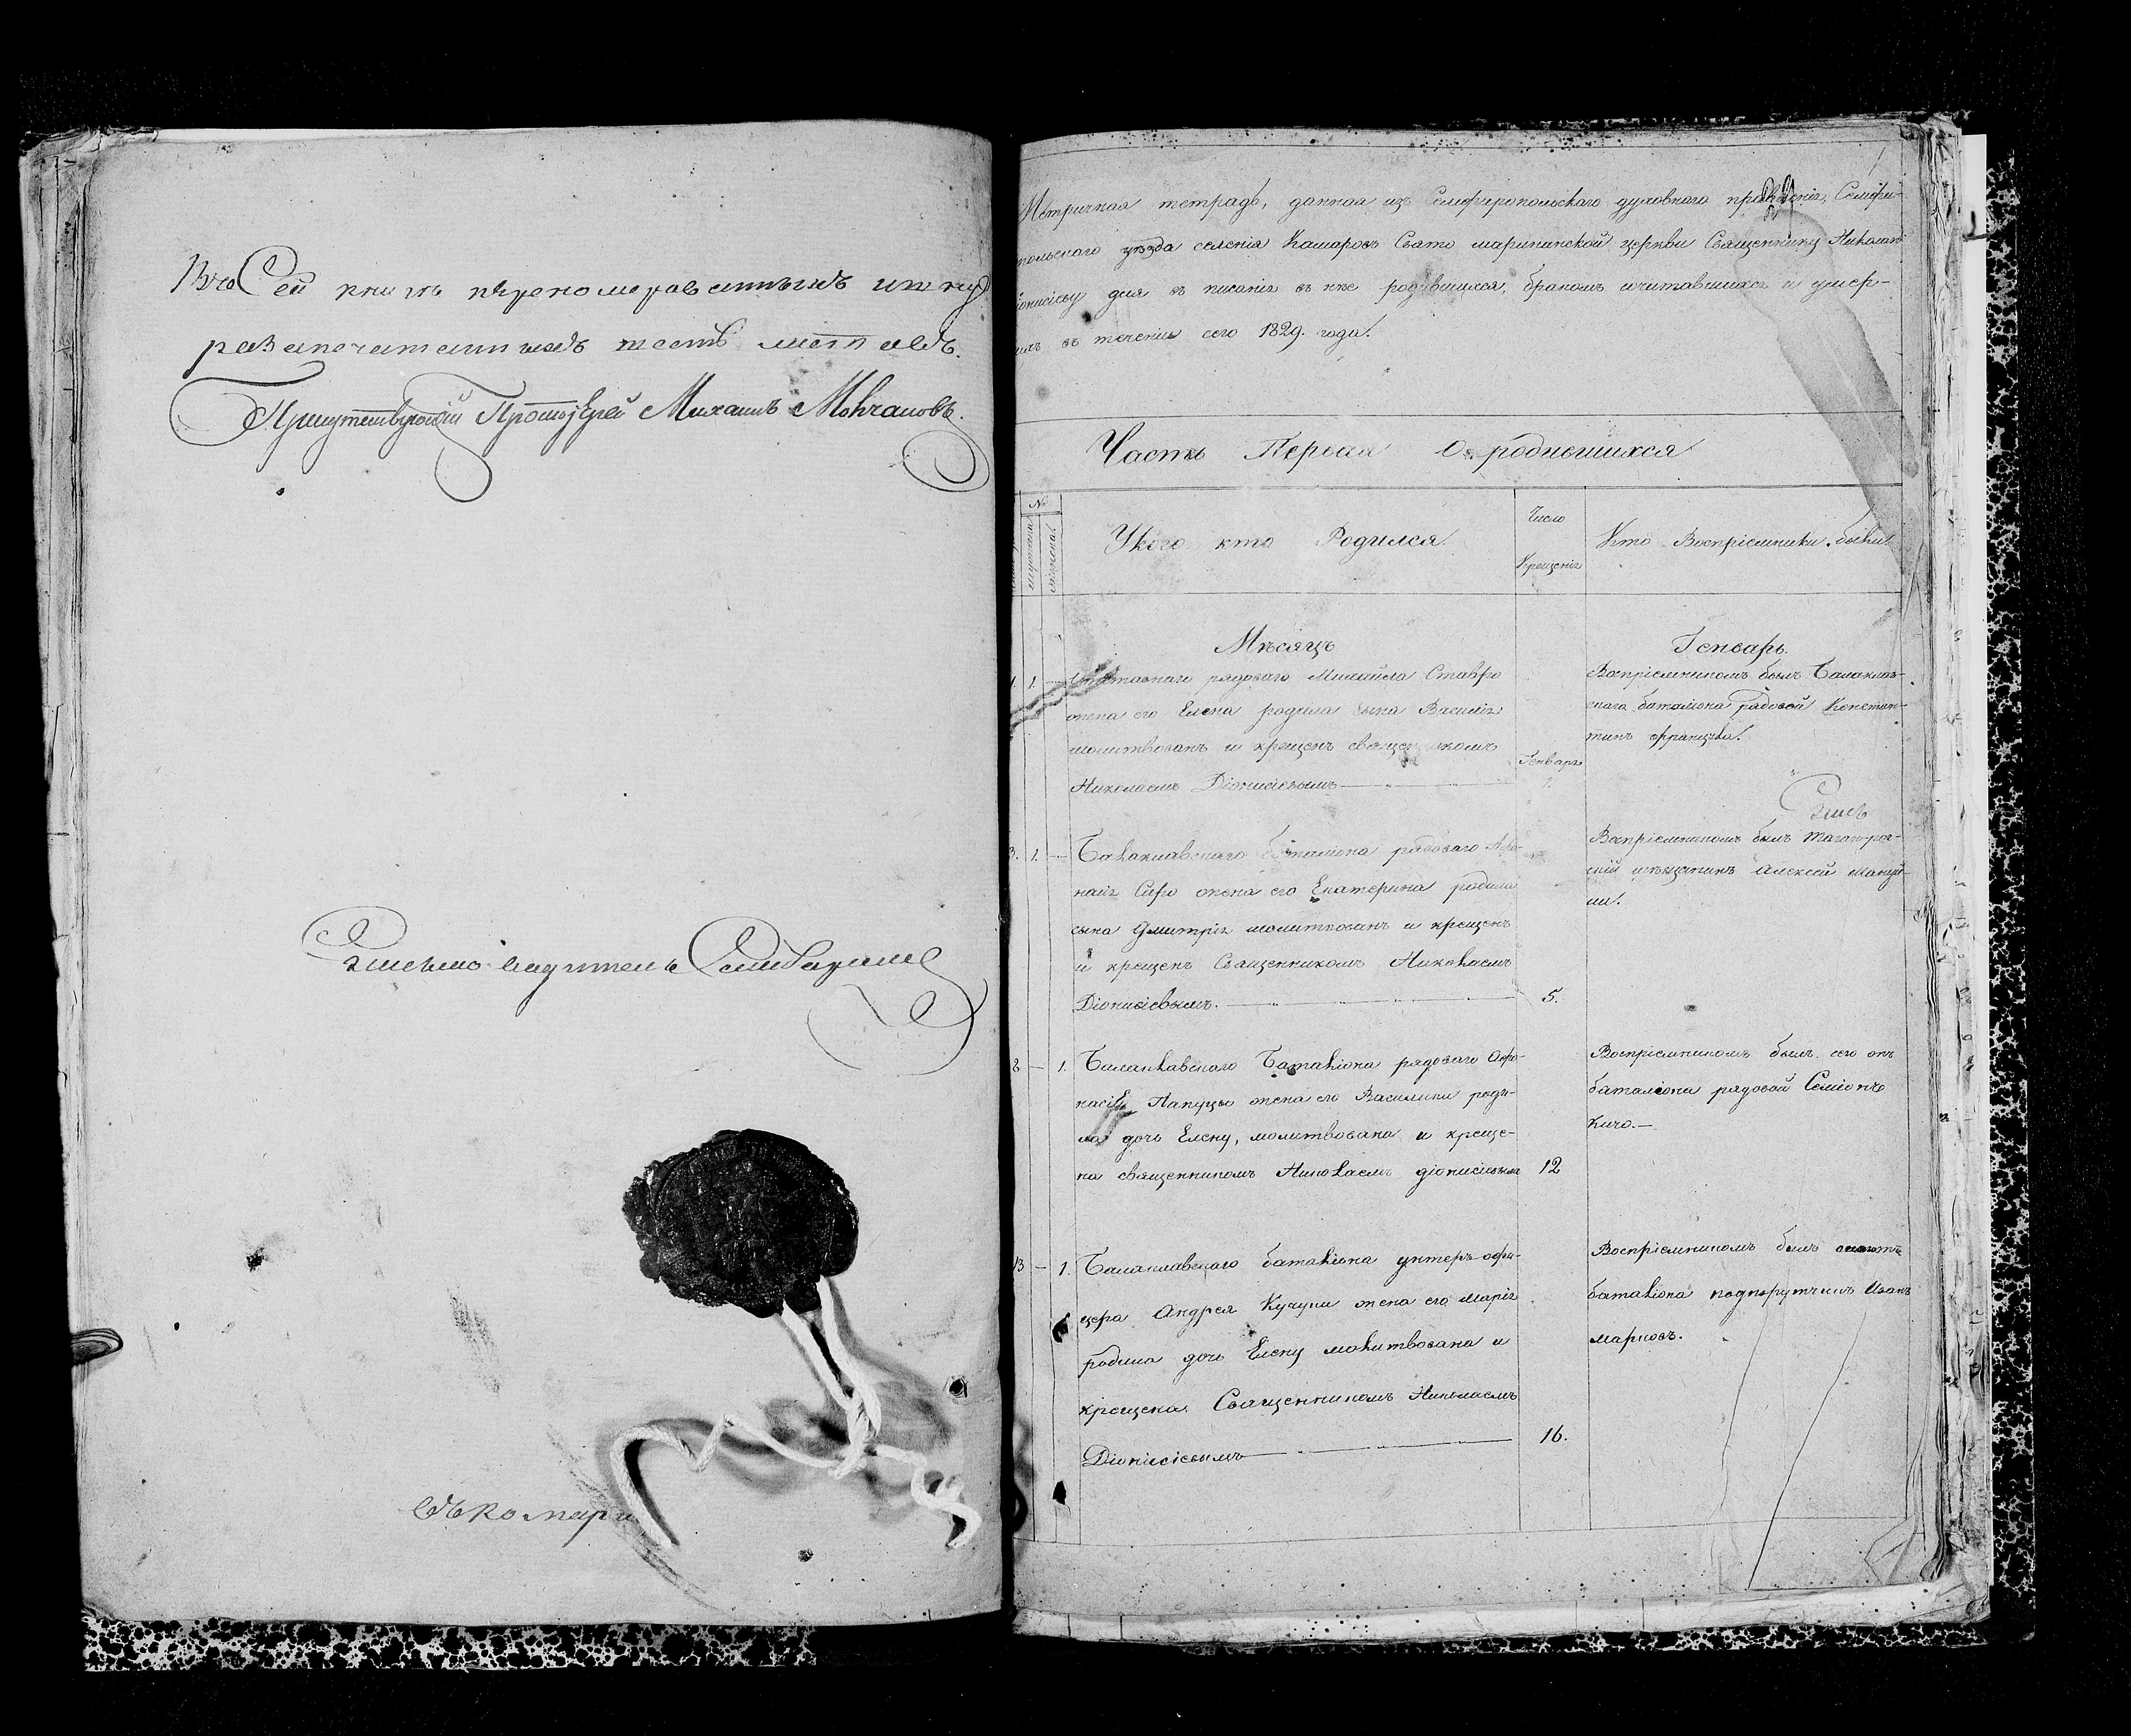 Въ Сей книгѣ перенумерованныхъ и шну
разапечатанныхъ шесть листовъ.
Присутствующій Протоіерей Михаилъ Молчановъ.
Письмоводитель
въ Комары
Метричная тетрадь, данная изъ Семферопольскаго духовнаго правленія, Семфи-
польскаго уезда селенія Камаровъ Свято марининской церкви Священнику Николаю
Діонисіеву для въ писанія въ нее родившихся, бракомъ сочитавшихся и умер-
шихъ въ теченіи сего 1829. года.
Часть Первая О родившихся
№
мужескаго
женскаго
У кого кто Родился
Число
Крещенія
Кто Воспріемники были
Мѣсяцъ
Генварь.
1. 1. — рядоваго Михайла Ставро
жена его Елена родила сына Василія
молитвованъ и крещенъ священникомъ
Николаемъ Діонисіевымъ
Генваря
1.
Воспріемникомъ былъ Балаклав-
скаго баталіона рядовой Констан-
тинъ Францужа.
3. 1. — Балаклавскаго баталіона рядоваго Афо-
насія Сифо жена его Екатерина родила
сына Дмитрія молитвованъ и крещенъ
и крещенъ Священникомъ Николаемъ
Діонисіевымъ. 5.
Воспріемникомъ былъ Таганрог-
скій мѣщанинъ Алексей Мануй-
ли.
8 — 1. Балаклавскаго Баталіона рядоваго Афо-
насія Папуцы жена его Василики роди-
ла дочь Елену, молитвована и креще-
на священникомъ Николаемъ Діонисіевымъ 12
Воспріемникомъ былъ сего жъ
баталіона рядовой Семіонъ
Кичо. —
13 — 1. Балаклавскаго баталіона унтеръ-офи-
цера Андрея Кучуки жена его Марія
родила дочь Елену молитвована и
крещена Священникомъ Николаемъ
Діонисіевымъ 16.
Воспріемникомъ былъ
баталіона подпорутчикъ Иванъ
Марковъ.